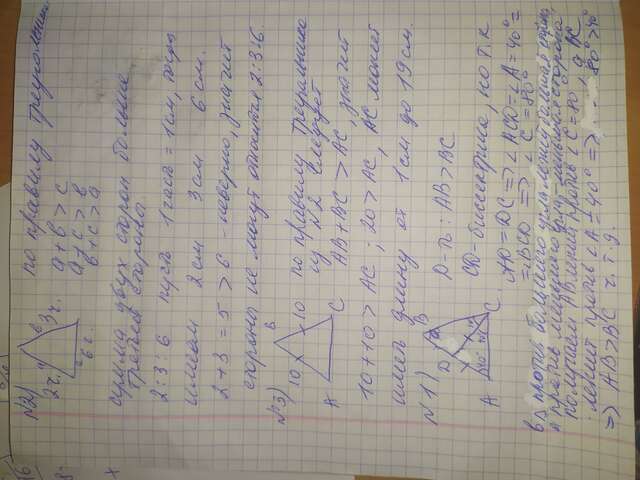 №2) по правилу треугольника
a + b > c
a + c > b
b + c > a
2ч. 3ч.
6ч.
сумма двух сторон больше
третьей стороны.
2:3:6 пусть 1 часть = 1 см, тогда
имеем 2см 3см 6см.
2+3=5 > 6 - неверно, значит
стороны не могут относиться 2:3:6.
№3) по правилу треугольника
из №2 следует
10 B 10
A C
AB + BC > AC, значит
10+10 > AC; 20 > AC, AC может
иметь длину от 1см до 19 см.
№1) Д-ть: AB > BC
B
D
A C
CD - биссектриса, но т.к
AD = DC => ∠ACD = ∠A = 40° =
= ∠BCD => ∠C = 80°
против большего угла лежит большая сторона,
а против меньшего угла - меньшая сторона,
получаем AB лежит против ∠C = 80°, а BC
лежит против ∠A = 40° => 80° > 40°
=> AB > BC ч. т. д.